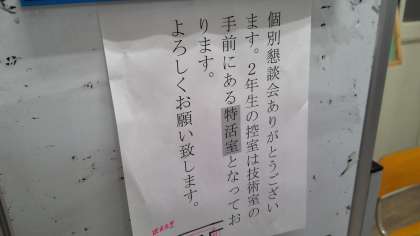 個別懇談会ありがとうござい
ます。２年生の控室は技術室の
手前にある特活室となってお
ります。
よろしくお願い致します。